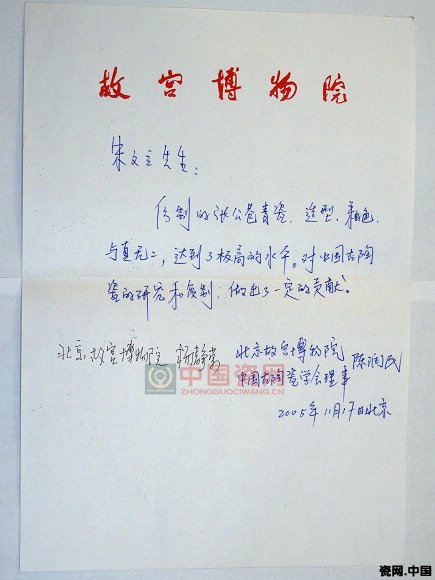 故宫博物院
宋文立先生：
仿制的张公巷青瓷、造型、釉色
与真无二，达到了极高的水平。对中国古陶
瓷的研究和复制，做出了一定的贡献。
北京故宫博物院 杨静荣
北京故宫博物院 陈润民
中国古陶瓷学会理事
2005年11月17日北京
中国瓷网
ZHONGGUOCIWANG.CN
瓷网.中国